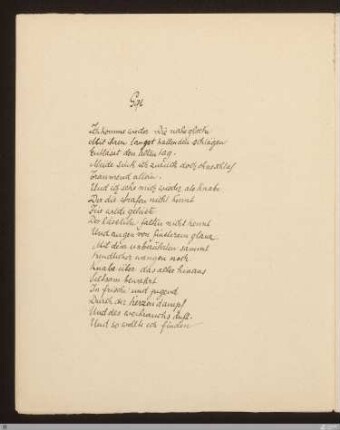 Ich komme wieder. Die nahe glocke
Mit ihren langen hallenden schlägen
Entlässt den hellen tag.
Müde sink ich zurück doch ohne schlaf
Träumend allein.
Und ich sehe mich wieder als knabe
Der die strafen nicht kennt
Für wilde gelüste
Der falten nicht kennt
Und augen von finsterem glanz
Mit dem unberührten sammt
Freundlicher wangen noch
Knabe über das alles hinaus
Seltsam bewahrt
In frische und jugend
Durch der kerzen dampf
Und des weihrauchs duft.
Und so wollte ich finden